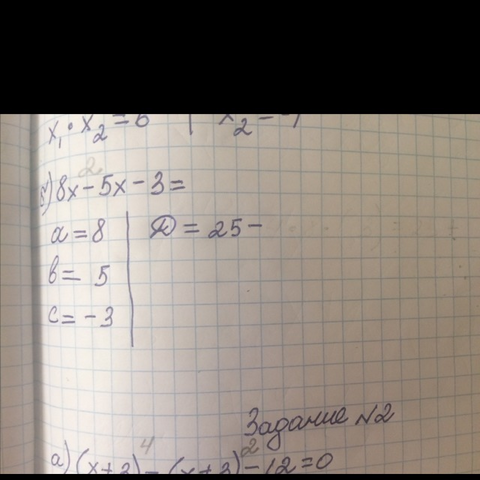 x₁·x₂=6 | x₂=-1
б) 8x²-5x-3=
a=8 | D=25-
b= 5
c=-3
Задание N2
а) (x+3)⁴-(x+3)²-12=0